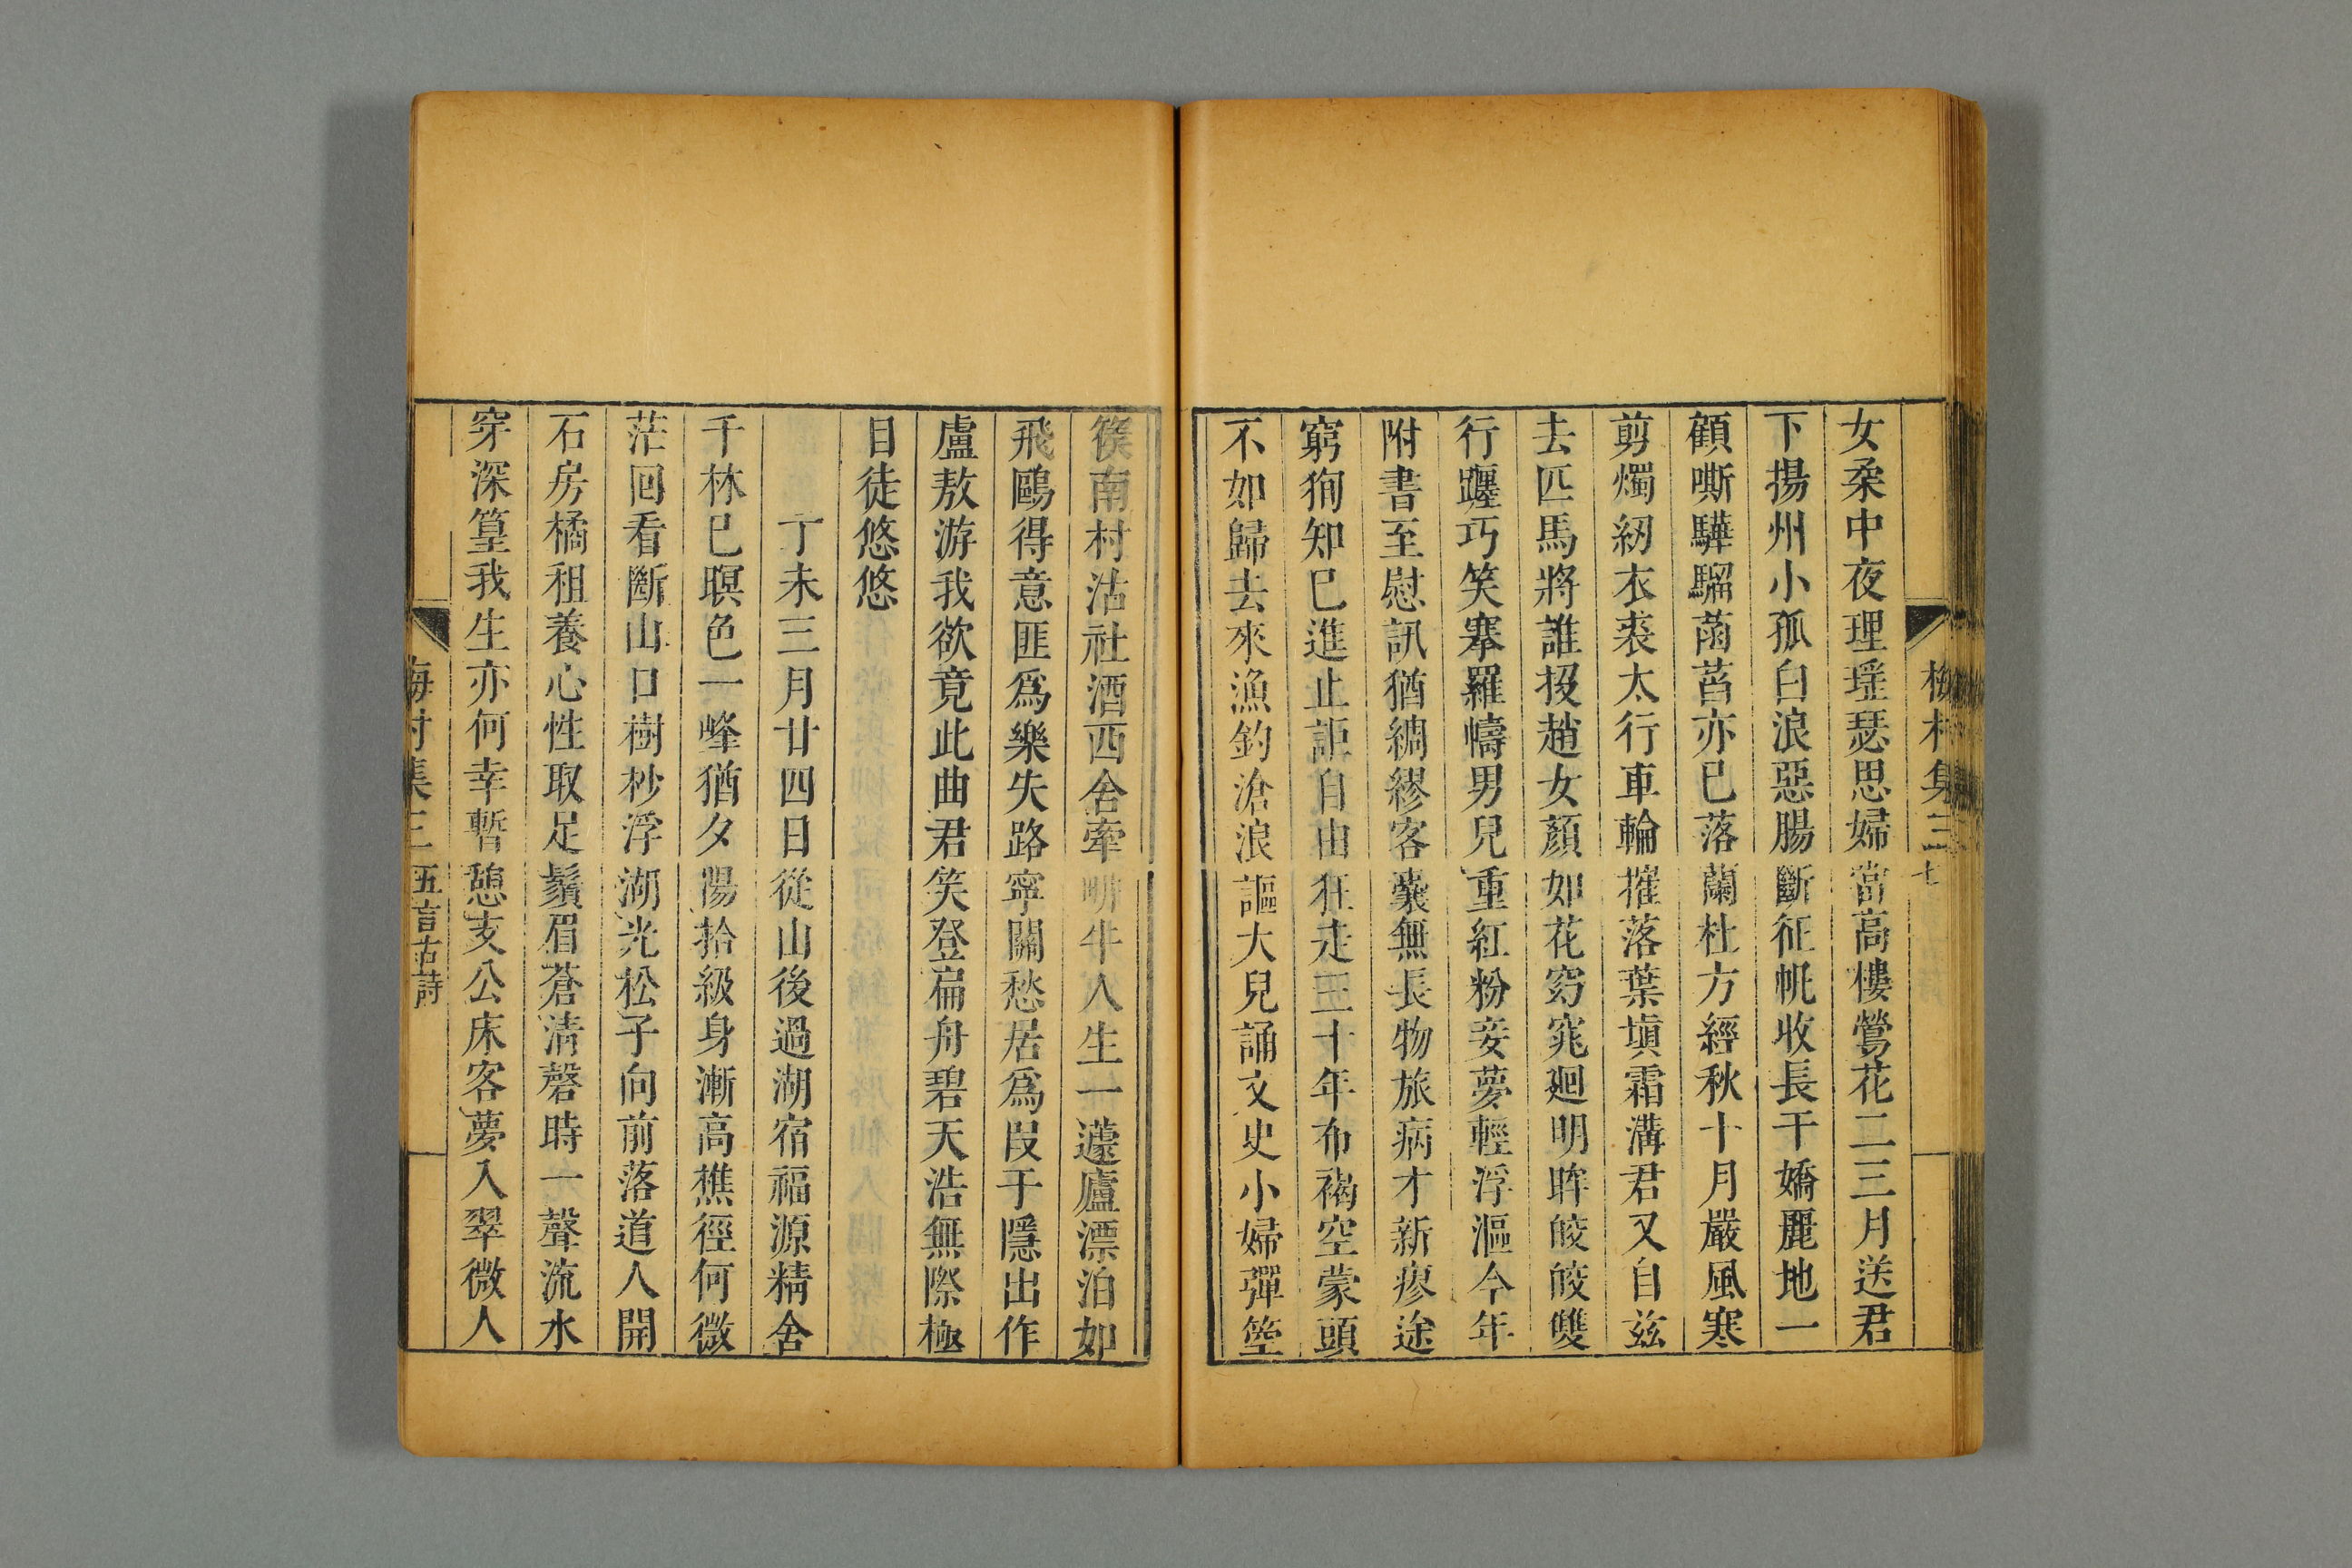 梅村集三 七
女柔中夜理瑶瑟思婦當高樓鶯花二三月送君
下揚州小孤白浪惡腸斷征帆收長干嬌麗地一
顧嘶驊騮菡萏亦已落蘭杜方經秋十月嚴風寒
剪燭紉衣裘太行車輪摧落葉塡霜溝君又自兹
去匹馬將誰投趙女顏如花窈窕廻明眸皎皎雙
行躔巧笑搴羅幬男兒重紅粉妾夢輕浮漚今年
附書至慰訊猶綢繆客囊無長物旅病才新瘳途
窮狥知巳進止詎自由狂走三十年布褐空蒙頭
不如歸去來漁釣滄浪謳大兒誦文史小婦彈箜
篌南村沽社酒西舍牽畊牛人生一蘧廬漂泊如
飛鷗得意匪爲樂失路寧關愁居爲段于隱出作
盧敖游我欲竟此曲君笑登扁舟碧天浩無際極
目徒悠悠
丁未三月廿四日從山後過湖宿福源精舍
千林已暝色一峰猶夕陽拾級身漸高樵徑何微
茫回看斷山口樹杪浮湖光松子向前落道人開
石房橘租養心性取足鬚眉蒼淸磬時一聲流水
穿深篁我生亦何幸暫憩支公床客夢入翠微人
梅村集三 五言古詩